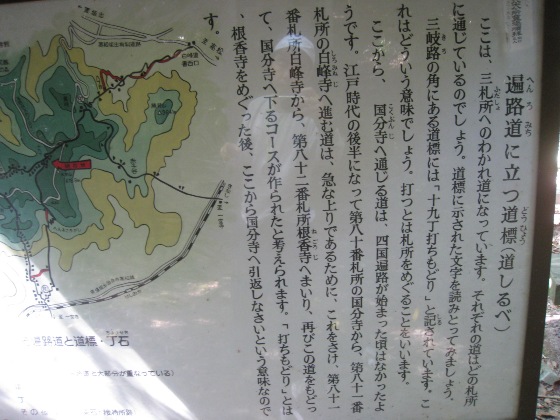 遍路道に立つ道標(道しるべ)
へんろみち
どうひょう
ここは、三札所へのわかれ道になっています。それぞれの道はどの札所
ふだしょ
に通じているのでしょう。道標に示された文字を読みとってみましょう。
三岐路の角にある道標には「十九丁打ちもどり」と記されています。こ
きろ
れはどういう意味でしょう。打つとは札所をめぐることをいいます。
ここから、国分寺へ通じる道は、四国遍路が始まった頃はなかったよ
こくぶんじ
うです。江戸時代の後半になって第八十番札所の国分寺から、第八十一番
札所の白峰寺へ進む道は、急な上りであるために、これをさけ、第八十一
しろみねじ
番札所白峰寺から、第八十二番札所根香寺へまいり、再びこの道をもどっ
ねころじ
て、国分寺へ下るコースが作られたと考えられます。「打ちもどり」とは
、根香寺をめぐった後、ここから国分寺へ引返しなさいという意味なので
す。
路道と道標・丁石
ちょうせき